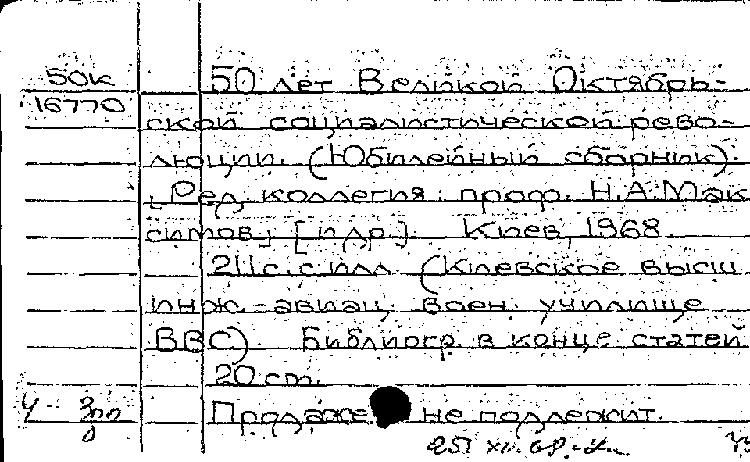 50к
16770
50 лет Великой Октябрь-
ской социалистической рево-
люции. (Юбилейный сборник).
[Ред. коллегия: проф. Н.А. Мак
симов] [и др.]. Киев, 1968.
211 с. с илл. (Киевское высш
инж.-авиац. воен. училище
ВВС). Библиогр. в конце статей
20 см.
Продаже не подлежит.